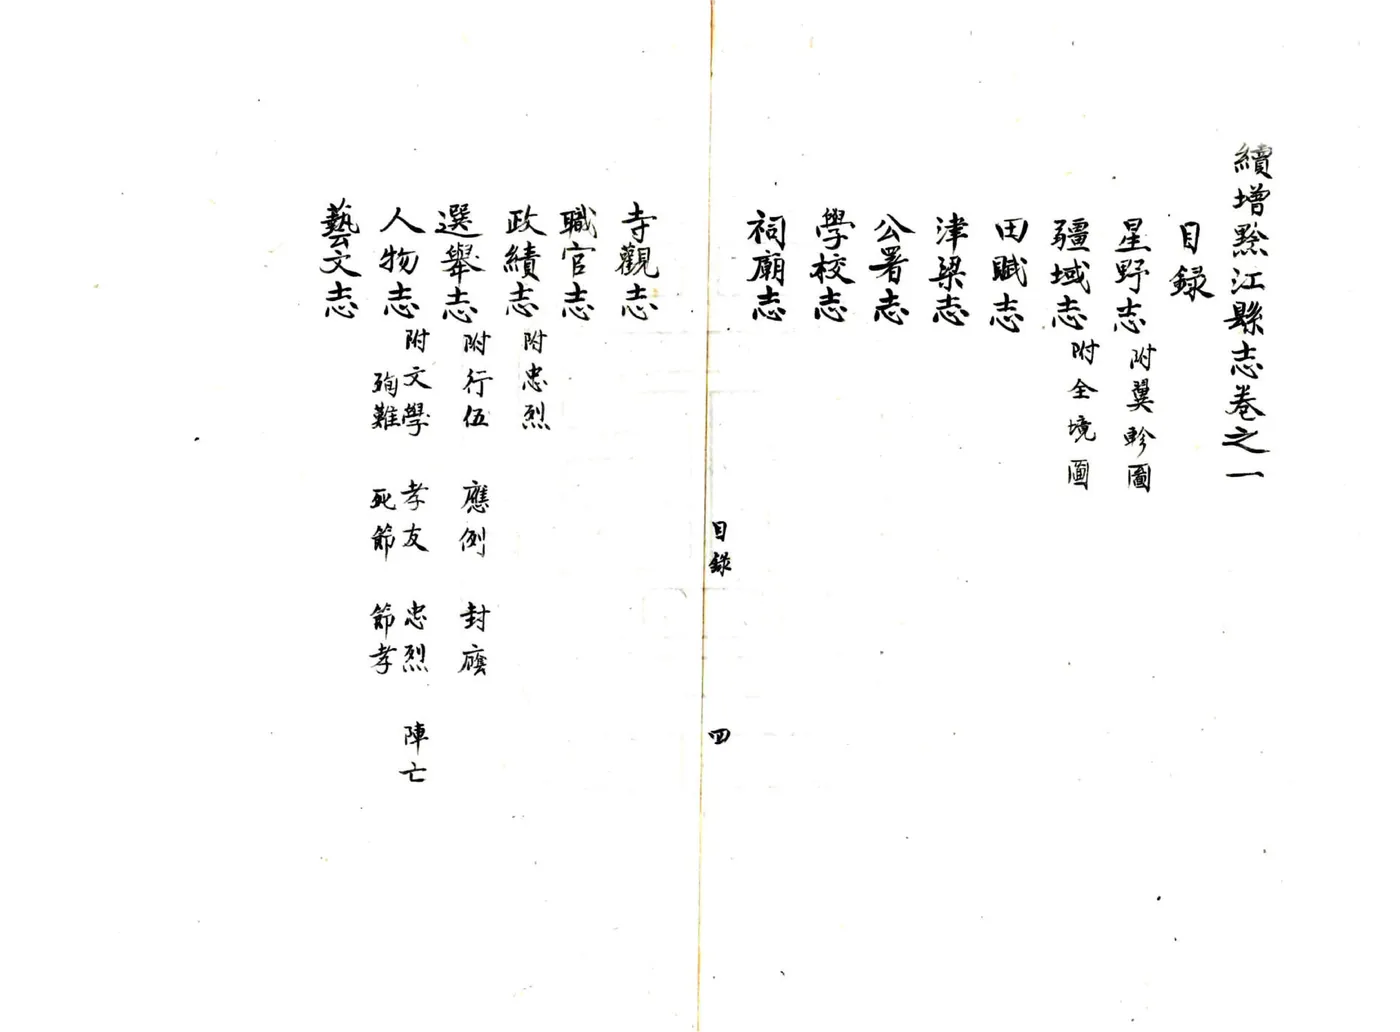 續增黔江縣志卷之一
目錄
星野志 附翼軫圖
疆域志 附全境圖
田賦志
津梁志
公署志
學校志
祠廟志
目錄 四
寺觀志
職官志
政績志 附忠烈
選舉志 附行伍 應例 封廕
人物志 附文學 孝友 忠烈 陣亡
殉難 死節 節孝
藝文志